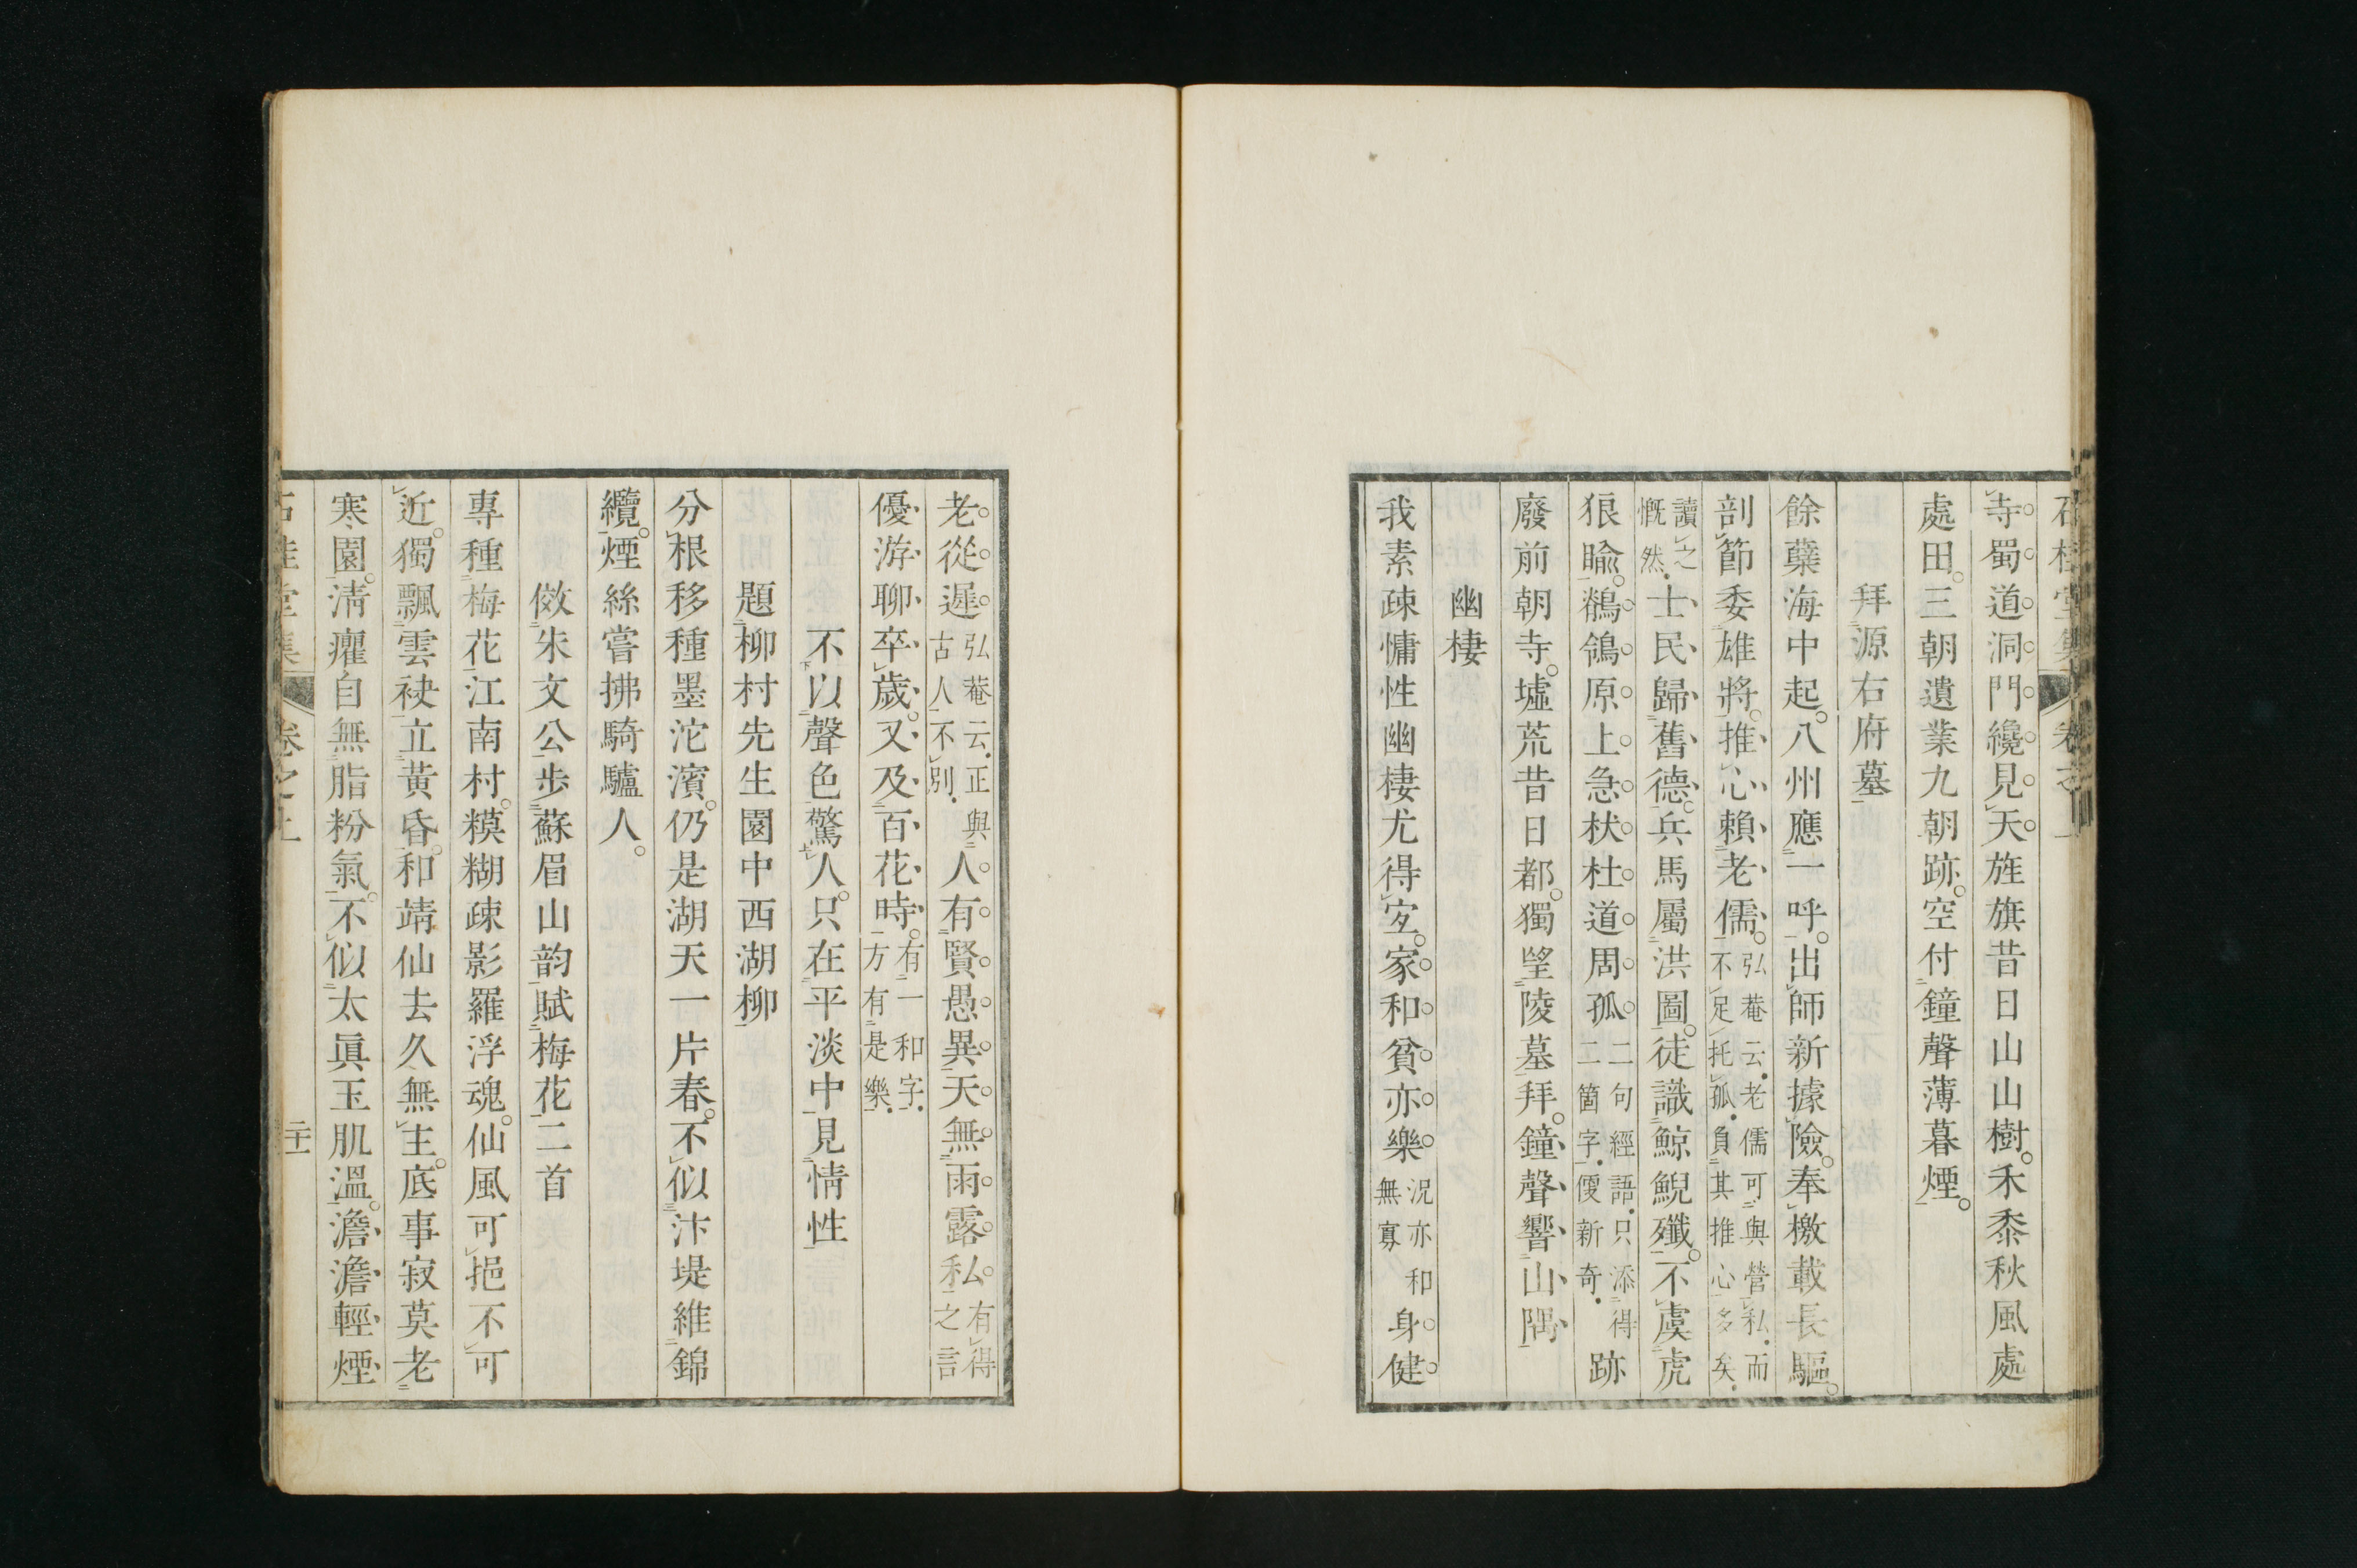 石桂堂集 卷之上
寺蜀道洞門纔見天旌旗昔日山山樹禾黍秋風處
處田三朝遺業九朝跡空付鐘聲薄暮煙
拜源右府墓
餘蘖海中起八州應一呼出師新據險奉檄載長驅
剖節委雄將推心賴老儒弘菴云老儒可與營私而不足托孤負其推心多矣
讀之慨然士民歸舊德兵馬屬洪圖徒識鯨鯢殲不虞虎
狼踰鶺鴒原上急杕杜道周孤二句經語只添得二箇字便新奇跡
廢前朝寺墟荒昔日都獨望陵墓拜鐘聲響山隅
幽棲
我素疎慵性幽棲尤得宜家和貧亦樂況亦和無寡身健
老從遲弘菴云正與古人不別人有賢愚異天無雨露私有得之言
優游聊卒歲又及百花時有一和字方有是樂
不以聲色驚人只在平淡中見情性
題柳村先生園中西湖柳
分根移種墨沱濱仍是湖天一片春不似汴堤維錦
纜煙絲嘗拂騎驢人
倣朱文公步蘇眉山韵賦梅花二首
專種梅花江南村糢糊疎影羅浮魂仙風可挹不可
近獨飄雲袂立黃昏和靖仙去久無主底事寂莫老
寒園淸癯自無脂粉氣不似太眞玉肌溫澹澹輕煙
石桂堂集 卷之上